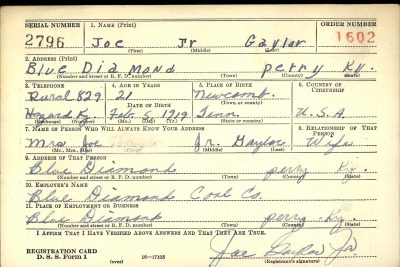 SERIAL NUMBER 1. NAME (Print) ORDER NUMBER
2796 Joe Jr Gaylor 1602
(First) (Middle) (Last)
2. ADDRESS (Print)
Blue Diamond perry Ky.
(Number and street or R. F. D. number) (Town) (County) (State)
3. TELEPHONE 4. AGE IN YEARS 5. PLACE OF BIRTH 6. COUNTRY OF CITIZENSHIP
Rural 829 21 Newcomb.
DATE OF BIRTH (Town or county)
Ky. Feb. 1919 Tenn U.S.A.
(Exchange) (Number) (Mo.) (Day) (Yr.) (State or country)
7. NAME OF PERSON WHO WILL ALWAYS KNOW YOUR ADDRESS 8. RELATIONSHIP OF THAT PERSON
Mrs Joe Jr. Gaylor Wife
(Mr., Mrs., Miss) (First) (Middle) (Last)
9. ADDRESS OF THAT PERSON
Blue Diamond perry Ky.
(Number and street or R. F. D. number) (Town) (County) (State)
10. EMPLOYER'S NAME
Blue Diamond Coal Co.
11. PLACE OF EMPLOYMENT OR BUSINESS
Blue Diamond perry Ky.
(Number and street or R. F. D. number) (Town) (County) (State)
I AFFIRM THAT I HAVE VERIFIED ABOVE ANSWERS AND THAT THEY ARE TRUE.
REGISTRATION CARD Joe Gaylor Jr
D. S. S. Form 1 (over) 16—17105 (Registrant's signature)